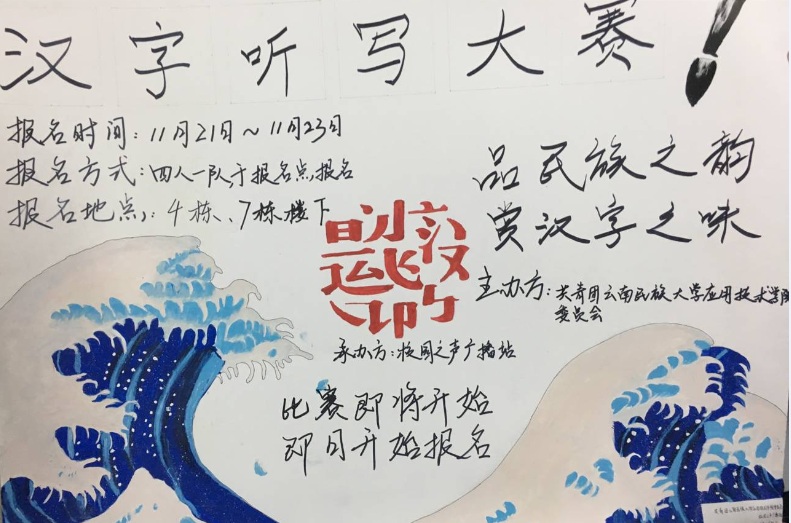 汉字听写大赛!
报名时间:11月21日~11月23日
报名方式:四人一队,于报名点报名
报名地点:4栋、7栋楼下
品民族之韵
赏汉字之味
主办方:共青团云南民族大学应用技术学院
委员会
承办方:校园之声广播站
比赛即将开始
即日开始报名